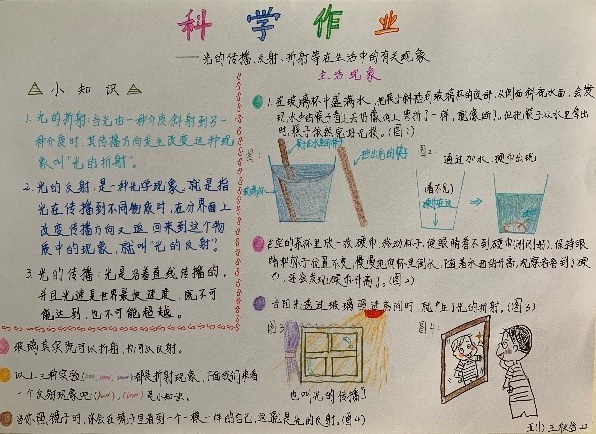 科学作业
——光的传播、反射、折射等在生活中的有关现象
小知识
1. 光的折射:当光由一种介质斜射到另一
种介质时,其传播方向发生改变,这种现
象叫“光的折射”。
2. 光的反射:是一种光学现象,就是指
光在传播到不同物质时,在分界面上
改变传播方向又返回来到这个物
质中的现象,就叫“光的反射”。
3. 光的传播:光是沿着直线传播的,
并且光速是世界最快速度,既不可
能达到,也不可能超越。
生活现象
1. 在玻璃杯中盛满水,把筷子斜插到玻璃杯的底部,从侧面斜视水面,会发
现,水中的筷子看上去好像向上弯折了一样,就像断了。但把筷子从水里拿出
时,筷子依然完好无损。(图1)
图1
图2
通过加水,硬币出现
玻璃杯
(看不见)
硬币在这
在空的茶杯里放一枚硬币,移动杯子,使眼睛看不到硬币(刚刚好),保持眼
睛和杯子位置不变,慢慢地向杯里倒水,随着水面的升高,观察者看到了硬
币,还会发现硬币升高了。(图2)
当阳光透过玻璃照进房间时,就产生了光的折射。(图3)
图3
图4:
也叫“光的传播”
玻璃其实既可以折射,也可以反射。
以上三种实验都是折射现象,下面我们来看
一个反射现象吧!是小知识。
当你照镜子时,你会在镜子里看到一个一模一样的自己,这就是光的反射。(图4)